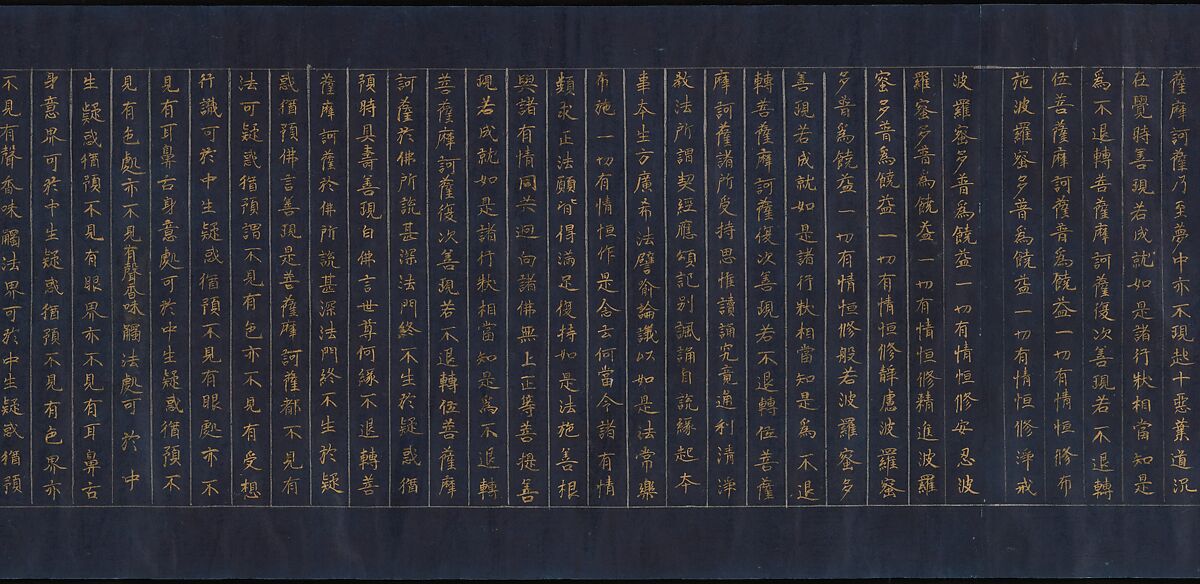 薩摩訶薩乃至夢中亦不現起十惡業道況
在覺時善現若成就如是諸行狀相當知是
為不退轉菩薩摩訶薩復次善現若不退轉
位菩薩摩訶薩普為饒益一切有情恒修布
施波羅蜜多普為饒益一切有情恒修淨戒
波羅蜜多普為饒益一切有情恒修安忍波
羅蜜多普為饒益一切有情恒修精進波羅
蜜多普為饒益一切有情恒修靜慮波羅蜜
多普為饒益一切有情恒修般若波羅蜜多
善現若成就如是諸行狀相當知是為不退
轉菩薩摩訶薩復次善現若不退轉位菩薩
摩訶薩諸所受持思惟讀誦究竟通利清淨
教法所謂契經應頌記別諷誦自說緣起本
事本生方廣希法譬喻論議以如是法常樂
布施一切有情恒作是念云何當令諸有情
類求正法願皆得滿足復持如是法施善根
與諸有情同共迴向諸佛無上正等菩提善
現若成就如是諸行狀相當知是為不退轉
菩薩摩訶薩復次善現若不退轉位菩薩摩
訶薩於佛所說甚深法門終不生於疑惑猶
預時具壽善現白佛言世尊何緣不退轉菩
薩摩訶薩於佛所說甚深法門終不生於疑
惑猶預佛言善現是菩薩摩訶薩都不見有
法可疑惑猶預謂不見有色亦不見有受想
行識可於中生疑惑猶預不見有眼處亦不
見有耳鼻舌身意處可於中生疑惑猶預不
見有色處亦不見有聲香味觸法處可於中
生疑惑猶預不見有眼界亦不見有耳鼻舌
身意界可於中生疑惑猶預不見有色界亦
不見有聲香味觸法界可於中生疑惑猶預